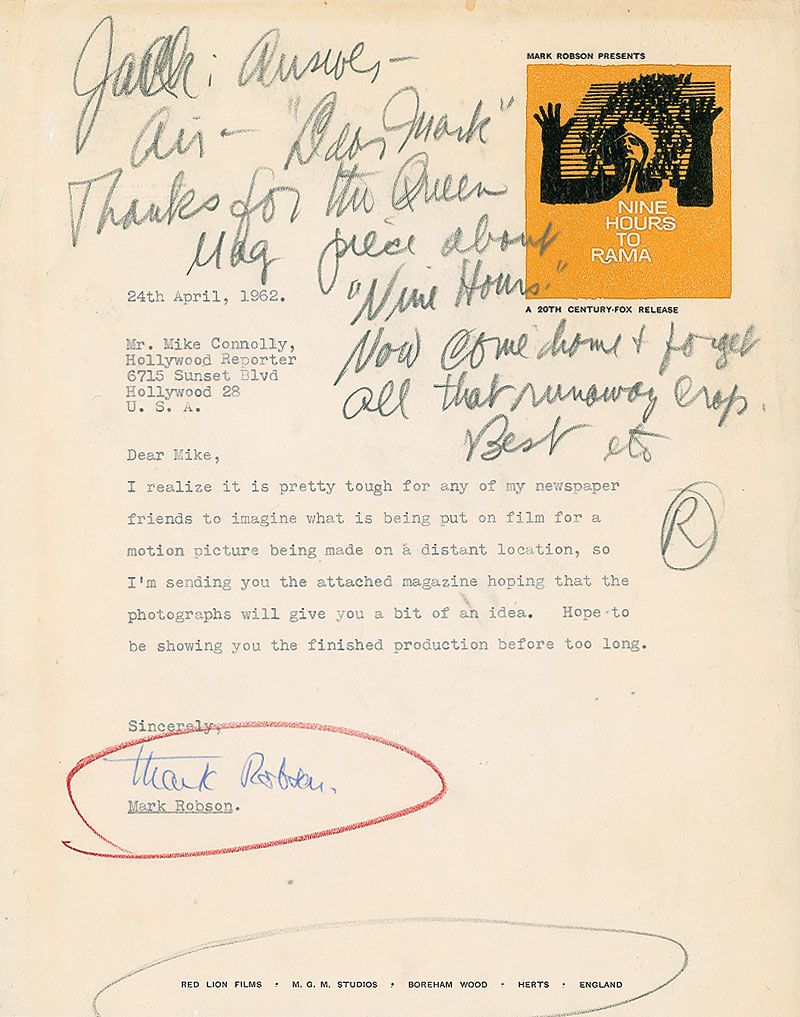 Jack: Answer—
Air— "Dear Mark"
Thanks for the Queen
Mag piece about
"Nine Hours."
Now come home & forget
all that runaway crap.
Best etc
R
MARK ROBSON PRESENTS
NINE
HOURS
TO
RAMA
A 20TH CENTURY-FOX RELEASE
24th April, 1962.
Mr. Mike Connolly,
Hollywood Reporter
6715 Sunset Blvd
Hollywood 28
U. S. A.
Dear Mike,
I realize it is pretty tough for any of my newspaper
friends to imagine what is being put on film for a
motion picture being made on a distant location, so
I'm sending you the attached magazine hoping that the
photographs will give you a bit of an idea. Hope to
be showing you the finished production before too long.
Sincerely,
Mark Robson.
Mark Robson.
RED LION FILMS · M. G. M. STUDIOS · BOREHAM WOOD · HERTS · ENGLAND